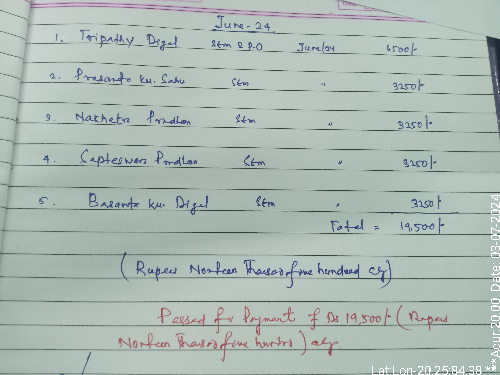 June-24
1. Tripathy Digal Stm & P.O June/24 6500/-
2. Prasanta ku. Sahu Stm " 3250/-
3. Nakhetra Pradhan Stm " 3250/-
4. Sapteswar Pradhan Stm " 3250/-
5. Basanta ku. Digal Stm " 3250/-
Total = 19,500/-
(Rupees Nonteen Thousand five hundred only)
Passed for Payment of Rs 19,500/- (Rupees
Nonteen Thousand five hundred) only.
Lat Lon-20.25:84.39 ***Acur.20.00 Date: 03-07-2024